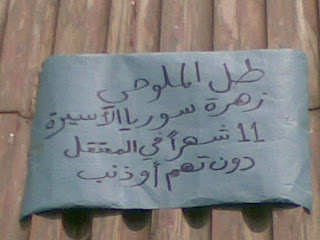 طل الملوحي
زهرة سوريا الأسيرة
11 شهراً في المعتقل
دون تهم أو ذنب